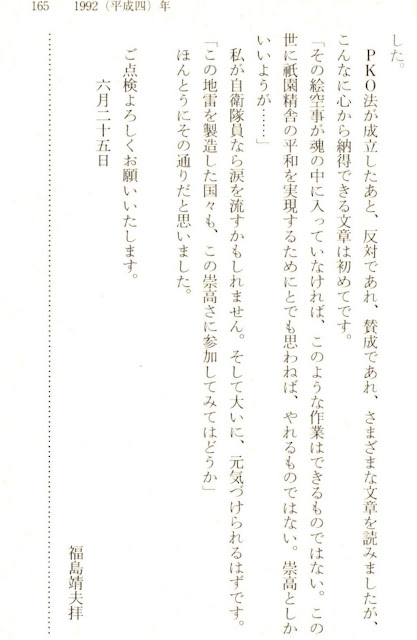 165　1992（平成四）年
した。
　ＰＫＯ法が成立したあと、反対であれ、賛成であれ、さまざまな文章を読みましたが、
こんなに心から納得できる文章は初めてです。
「その絵空事が魂の中に入っていなければ、このような作業はできるものではない。この
世に祇園精舎の平和を実現するためにとでも思わねば、やれるものではない。崇高としか
いいようが……」
　私が自衛隊員なら涙を流すかもしれません。そして大いに、元気づけられるはずです。
「この地雷を製造した国々も、この崇高さに参加してみてはどうか」
ほんとうにその通りだと思いました。
ご点検よろしくお願いいたします。
六月二十五日
福島靖夫拝